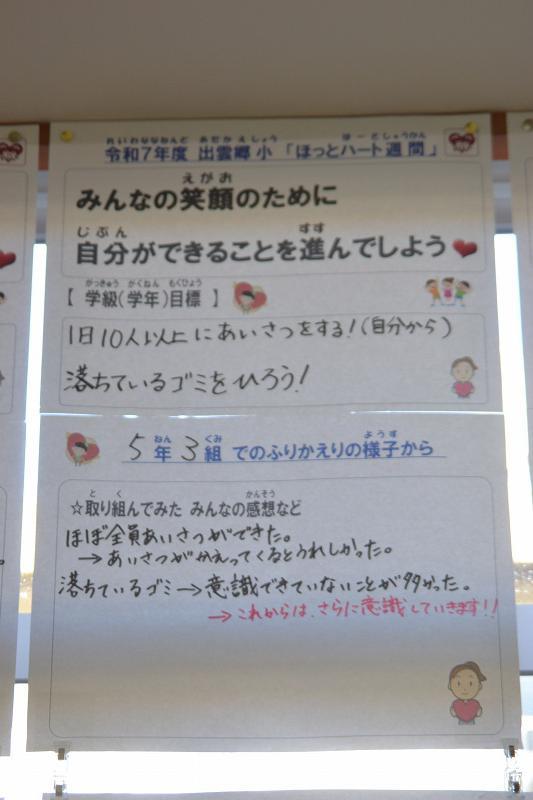 れいわななねんど あだかえしょう はーとしゅうかん
令和7年度 出雲郷小 「ほっとハート週間」
えがお
みんなの笑顔のために
じぶん すす
自分ができることを進んでしよう
がっきゅう がくねん もくひょう
【 学級(学年)目標 】
1日10人以上にあいさつをする!(自分から)
落ちているゴミをひろう!
ねん くみ ようす
5年3組 でのふりかえりの様子から
と く かんそう
☆取り組んでみた みんなの感想など
ほぼ全員あいさつができた。
→あいさつがかえってくるとうれしかった。
落ちているゴミ→意識できていないことが多かった。
→これからは、さらに意識していきます!!